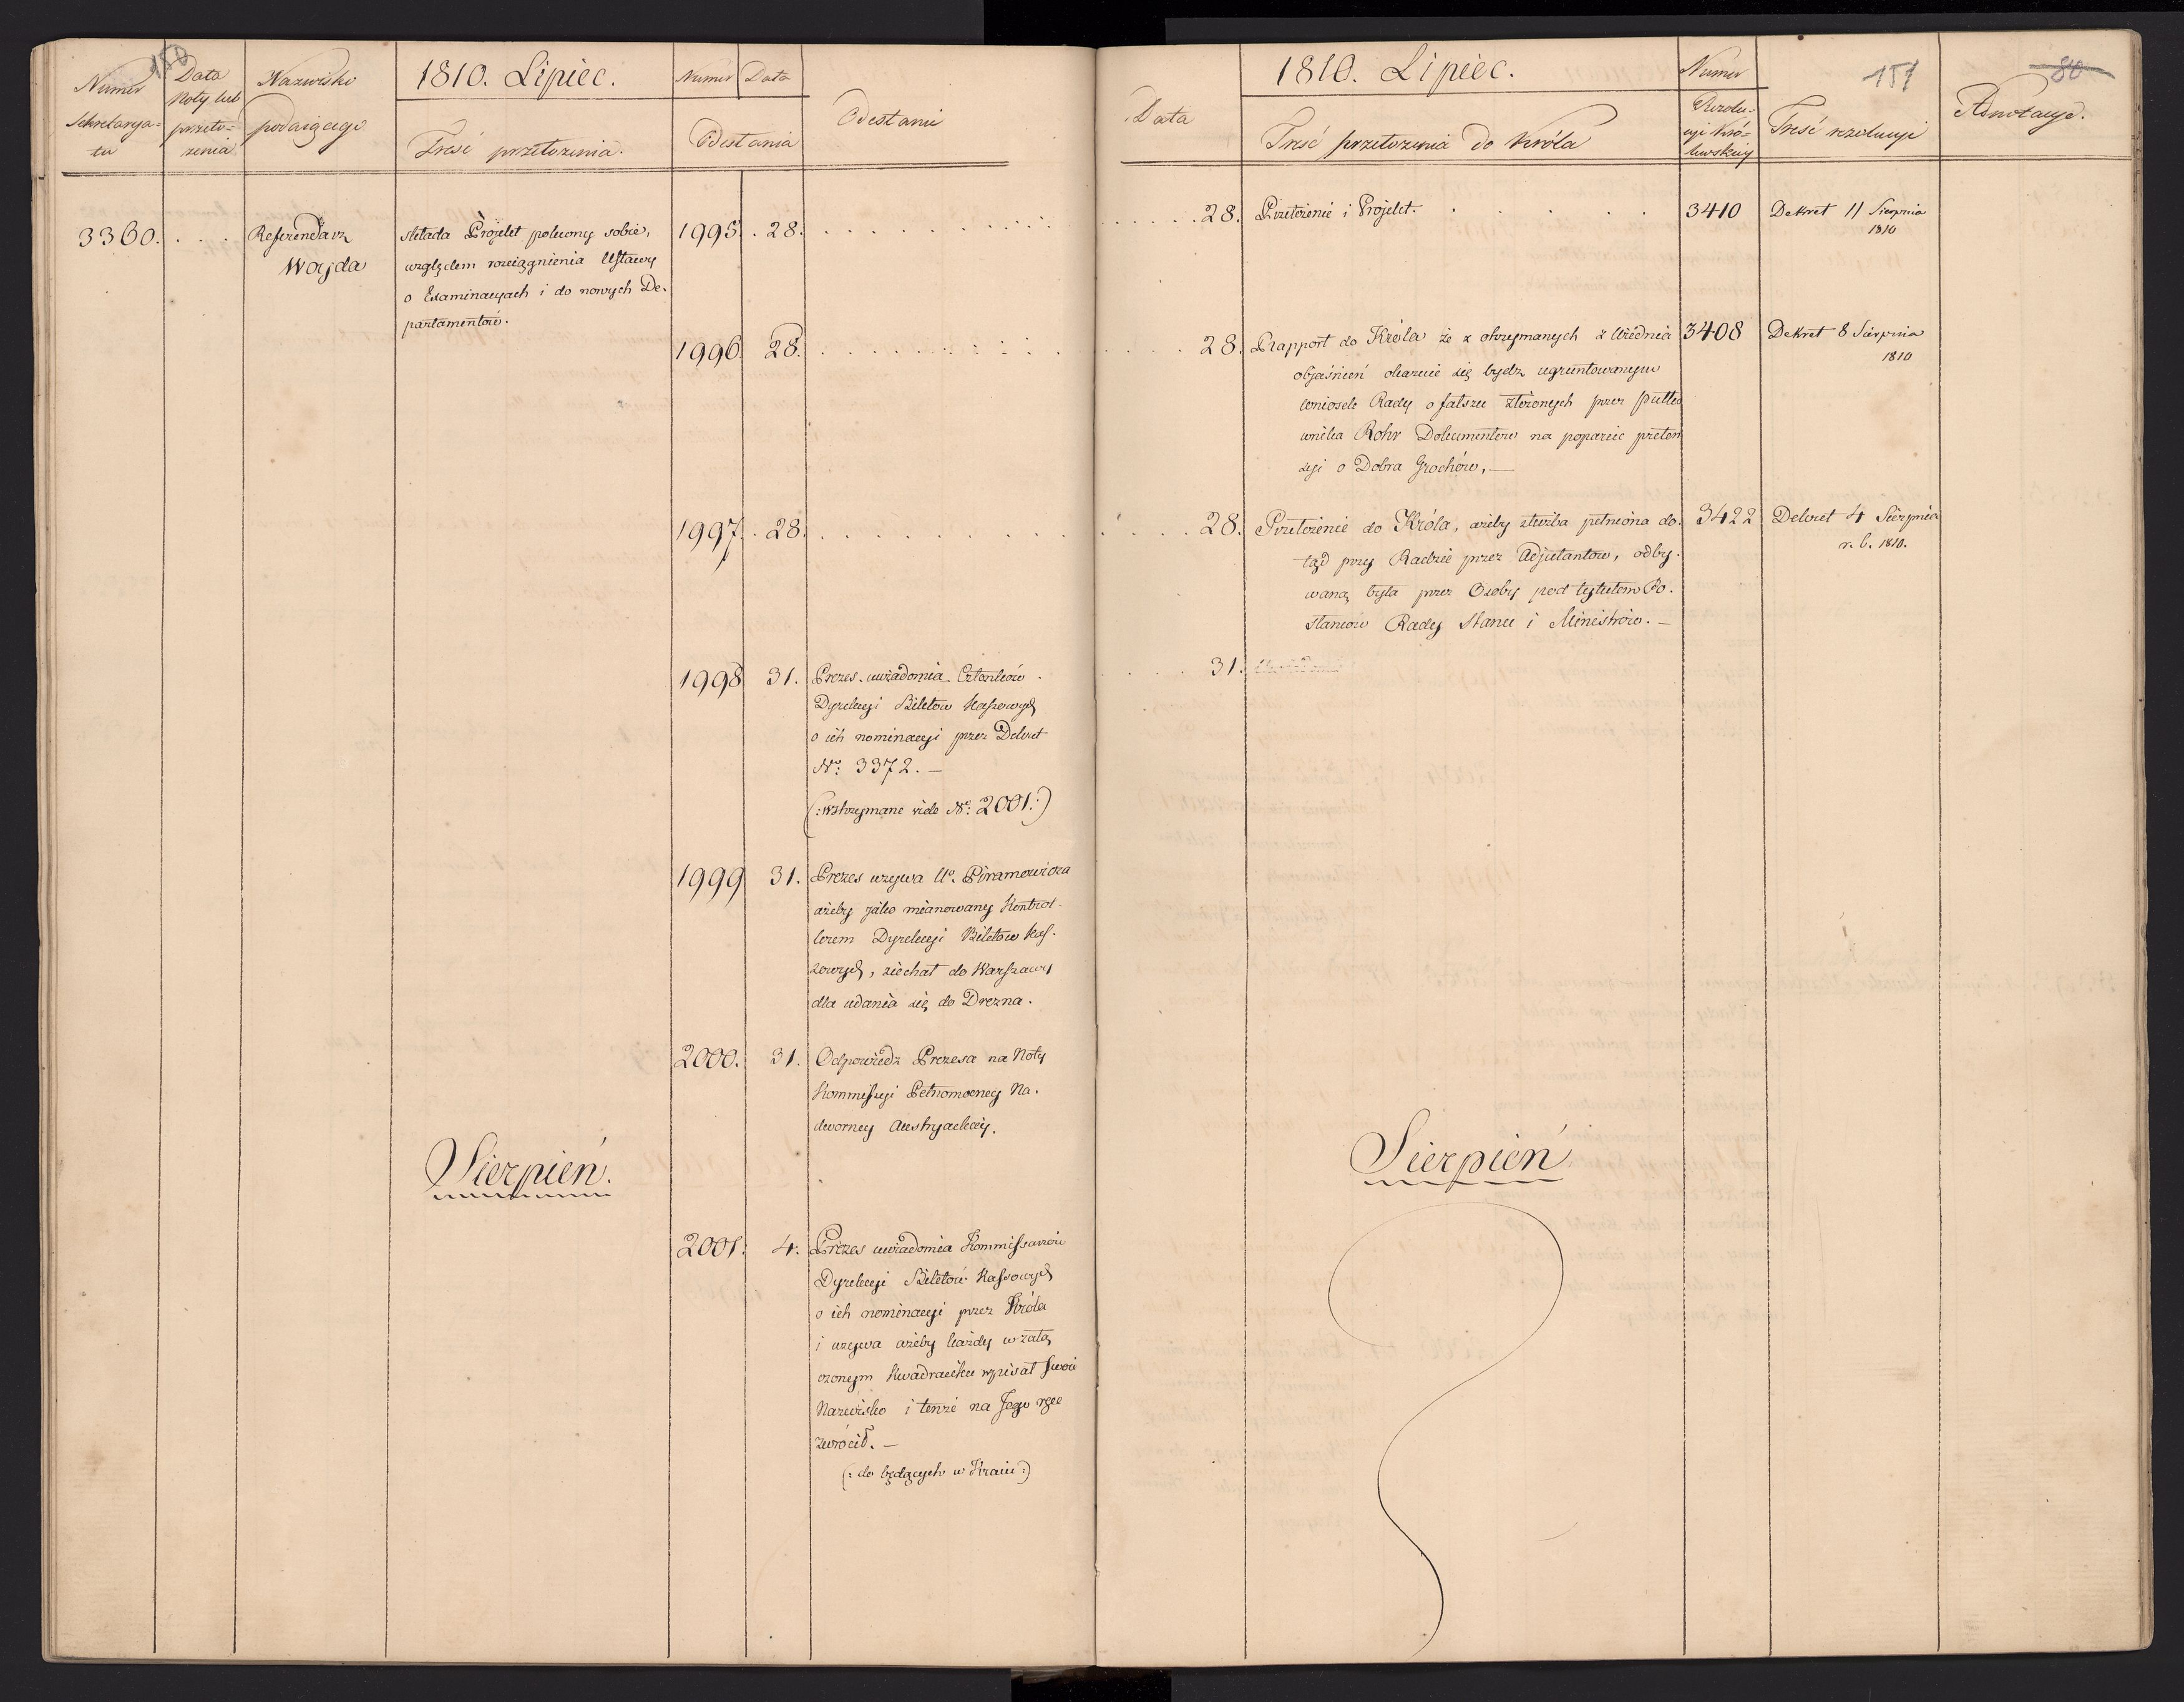 150
Numer Sekretarya=
tu
Data
Noty lub
przeło=
żenia
Nazwisko
podaiącego
1810. Lipiec.
Treść przełożenia.
Numer Data
Odesłania
Odesłanie
3360. . . . Referendarz
Woyda
składa Projekt polecony sobie,
względem rozciągnienia Ustawy
o Examinacyach i do nowych De-
partamentów.
1995 . 28.
1996. 28.
1997. . 28.
1998 31. Prezes uwiadomia Członków
Dyrekcyi Biletów Kassowych
o ich nominacyi przez Dekret
No: 3372. —
(: wstrzymane vide No: 2001. :)
1999 31. Prezes wzywa Uo. Piramowicza
ażeby jako mianowany Kontrol-
lerem Dyrekcyi Biletów Kas-
sowych, ziechał do Warszawy
dla udania się do Drezna.
2000. 31. Odpowiedz Prezesa na Noty
Kommissyi Pełnomocney Na-
dworney Austryackiey.
Sierpień.
2001. 4. Prezes uwiadomia Kommissarzów
Dyrekcyi Biletów Kassowych
o ich nominacyi przez Króla
i wzywa ażeby każdy w załą
czonym Kwadraciku wpisał swoie
Nazwisko i tenże na Jego ręce
zwrócił. —
(: do będących w Kraiu :)
151
80
Data
1810. Lipiec.
Treść przełożenia do Króla
Numer
Rezolu-
cyi Kró=
lewskiey
Treść rezolucyi
Adnotacye.
28. Przełożenie i Projekt. 3410 Dekret 11 Sierpnia
1810
28. Rapport do Króla że z otrzymanych z Urzędnia 3408 Dekret 8 Sierpnia
1810
objaśnień okazuie się bydz ugruntowanym
wniosek Rady o fałszu złożonych przez Pułko
wnika Rohr Dokumentów na poparcie preten
syi o Dobra Grochów, —
28. Przełożenie do Króla, ażeby służba pełniona do- 3422 Dekret 4 Sierpnia
r. b. 1810.
tąd przy Radzie przez Adjutantów, odby-
waną była przez Osoby pod tytułem Po-
słańców Rady Stanu i Ministrów. —
31.
Sierpień